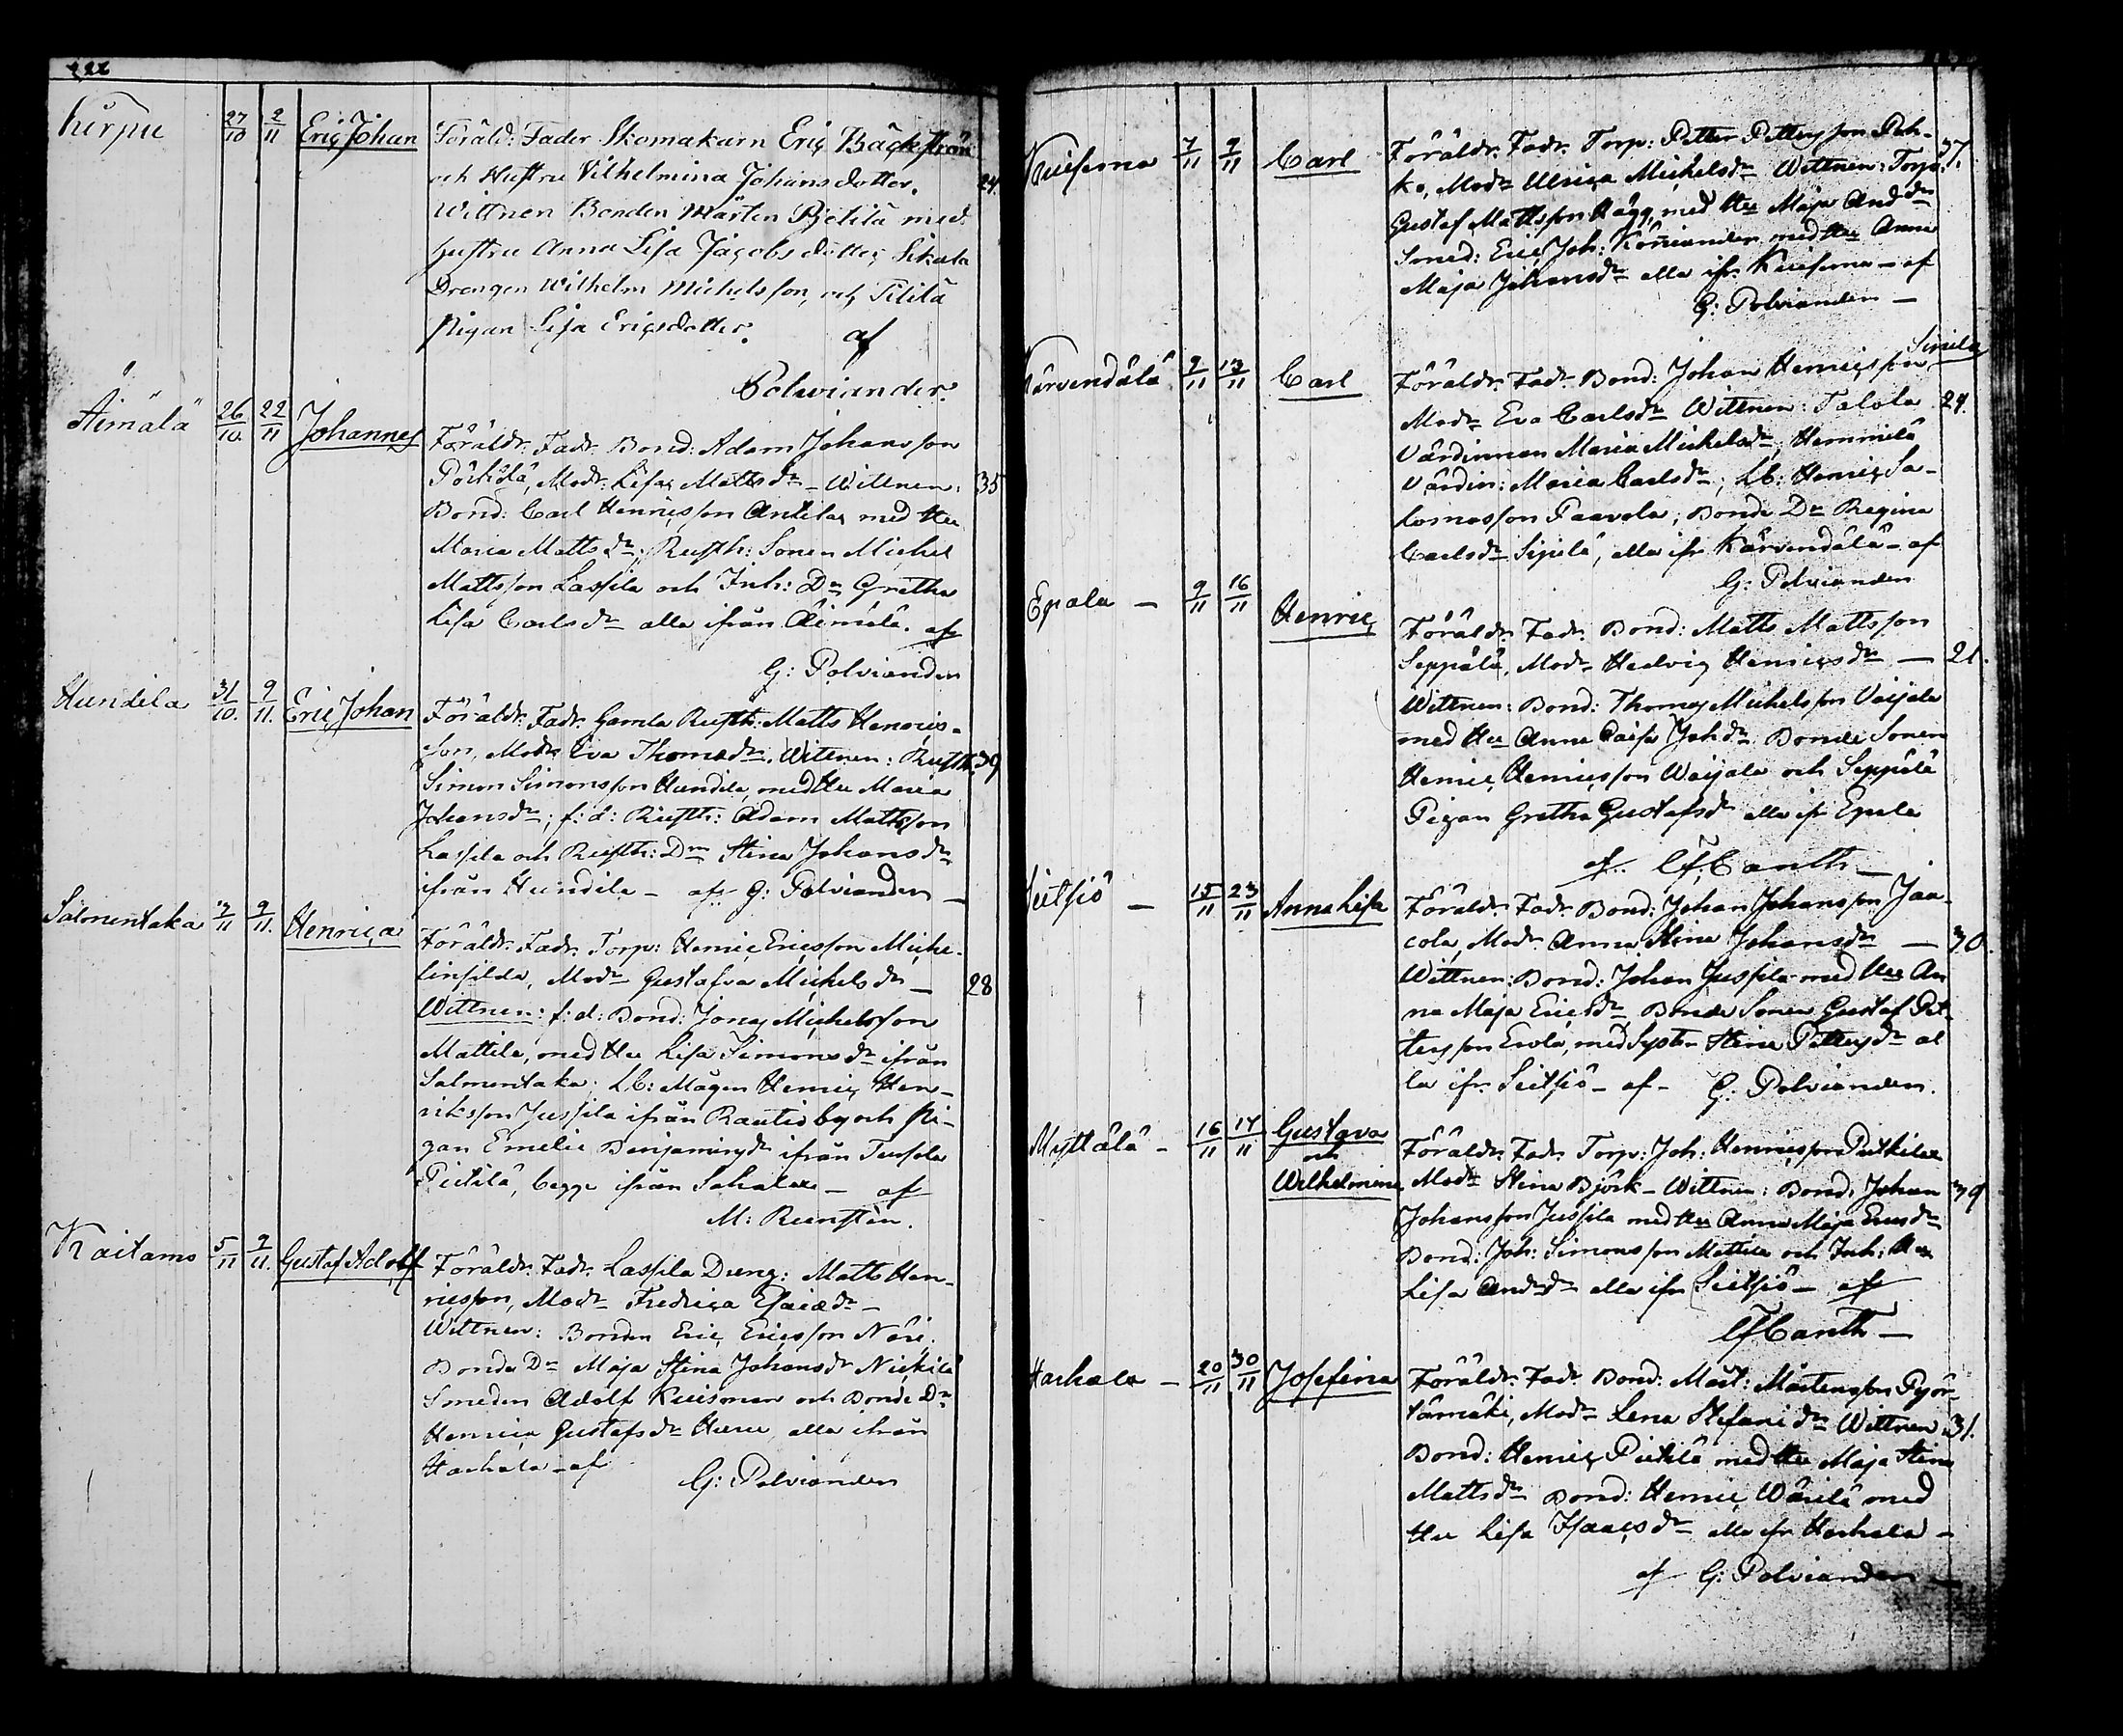 222
Kirpu 27/10 2/11 Eric Johan Föräld: Fader Skomakarn Eric Bäckström
och Hustru Vilhelmina Johansdotter. 24
Wittnen Bonden Mårten Pietilä med
hustru Anna Lisa Jacobsdotter, Sikala
Drengen Wilhelm Michelsson, och Pitilä
Pigan Lisa Ericsdotter. af
Polviander.
Äimälä 26/10. 22/11 Johannes Föräldr. Fadr. Bond: Adam Johansson
Pörkölä, Modr: Lisa Mattsdr – Wittnen: 35
Bond: Carl Henricsson Anttila med Hu
Maria Mattsdr; Rusth: Sonen Michel
Mattsson Lassila och Inh: Dr Gretha
Lisa Carlsdr alla ifrån Äimälä. af
G: Polviander
Hundila 31/10. 9/11. Eric Johan Föräldr. Fadr. Gamla Rusth: Matts Henrics-
son, Modr Eva Thomasdr. Wittnen: Rusth: 39
Simon Simonsson Hundila, med Hu Maria
Johansdr; f: d: Rusth: Adam Mattsson
Lassila och Rusth: Drn Stina Johansdr
ifrån Hundila – af G: Polviander –
Salmentaka 3/11 9/11. Henrica Föräldr. Fadr. Torp: Henric Ericsson Miche-
linsilda, Modr Gustafva Michelsdr – 28
Wittnen: f: d: Bond: Jonas Michelsson
Mattila, med Hu Lisa Simonsdr ifrån
Salmentaka; Lb: Mågen Henric Hen-
riksson Jussila ifrån Rautio by och Pi-
gan Emelie Benjaminsdr ifrån
Pietilä, begge ifrån Sahalax – af
M: Runsten.
Kaitamo 5/11 9/11. Gustaf Adolf Föräldr. Fadr. Lassila Dreng: Matts Hen-
ricsson, Modr Fredrica Esaiædr –
Wittnen: Bonden Eric Ericsson Näri.
Bonde Dr Maja Stina Johansdr Nickilä
Smeden Adolf Kuisman och Bonde Dr
Henrica Gustafsdr Huru alla ifrån
Haihala – af G: Polviander
Kuisema 7/11 9/11 Carl Föräldr. Fadr. Torp: Petter Pettersson Poh- 37.
ko, Modr Ulrica Michelsdr Wittnen: Torp:
Gustaf Mattsson Hägg, med Hu Maja Anddr
Smed: Eric Joh: Köniander med Hu Anna
Maja Johansdr alla ifr. Kuisema – af
G: Polviander –
Kärvendälä 9/11 13/11 Carl Föräldr. Fadr. Bond: Johan Henricsson Sipilä
Modr Eva Carlsdr Wittnen: Talola 24.
Värdinnan Maria Michelsdr; Hemmilä
Värdin: Maria Carlsdr; Lb: Henric Sa-
lomosson Paavola; Bonde Dr Regina
Carlsdr Sipilä, alla ifr Kärvendälä – af
G: Polviander
Epala – 9/11 16/11 Henric Föräldr. Fadr. Bond: Matts Mattsson
Seppälä, Modr Hedvig Henricsdr – 21.
Wittnen: Bond: Thomas Michelsson Vaijala
med Hu Anna Caisa Johdr Bonde Sonen
Henric Henricsson Waijala och Seppälä
Pigan Gretha Gustafsdr alla ifr Epala
af Canth –
Seitsiö – 15/11 23/11 Anna Lisa Föräldr. Fadr. Bond: Johan Johansson Jaa-
cola, Modr Anna Stina Johansdr – 30.
Wittnen: Bond: Johan Jussila med Hu An
na Maja Ericsdr Bonde Sonen Gustaf Pet-
tersson Erola, med Systr Stina Pettersdr al
la ifr. Seitsiö – af – G: Polviander.
Myttälä – 16/11 17/11 Gustava och Wilhelmina Föräldr. Fadr. Torp: Joh: Henricsson Putkila
Modr Stina Björk – Wittnen: Bond: Johan 39
Johansson Jussila med Hu Anna Maja Ericsdr
Bond: Joh: Simonsson Mattila och Inh: Hu
Lisa Anddr alla ifr Seitsiö – af
Canth –
Haihala – 20/11 30/11 Josefina Föräldr. Fadr. Bond: Mårt: Mårtensson Pyör-
tämäki, Modr Lena Stefansdr Wittnen 31.
Bond: Henric Pietilä med Hu Maja Stina
Mattsdr Bond: Henric Wärilä med
Hu Lisa Isaacsdr alla ifr Haihala –
af G: Polviander –